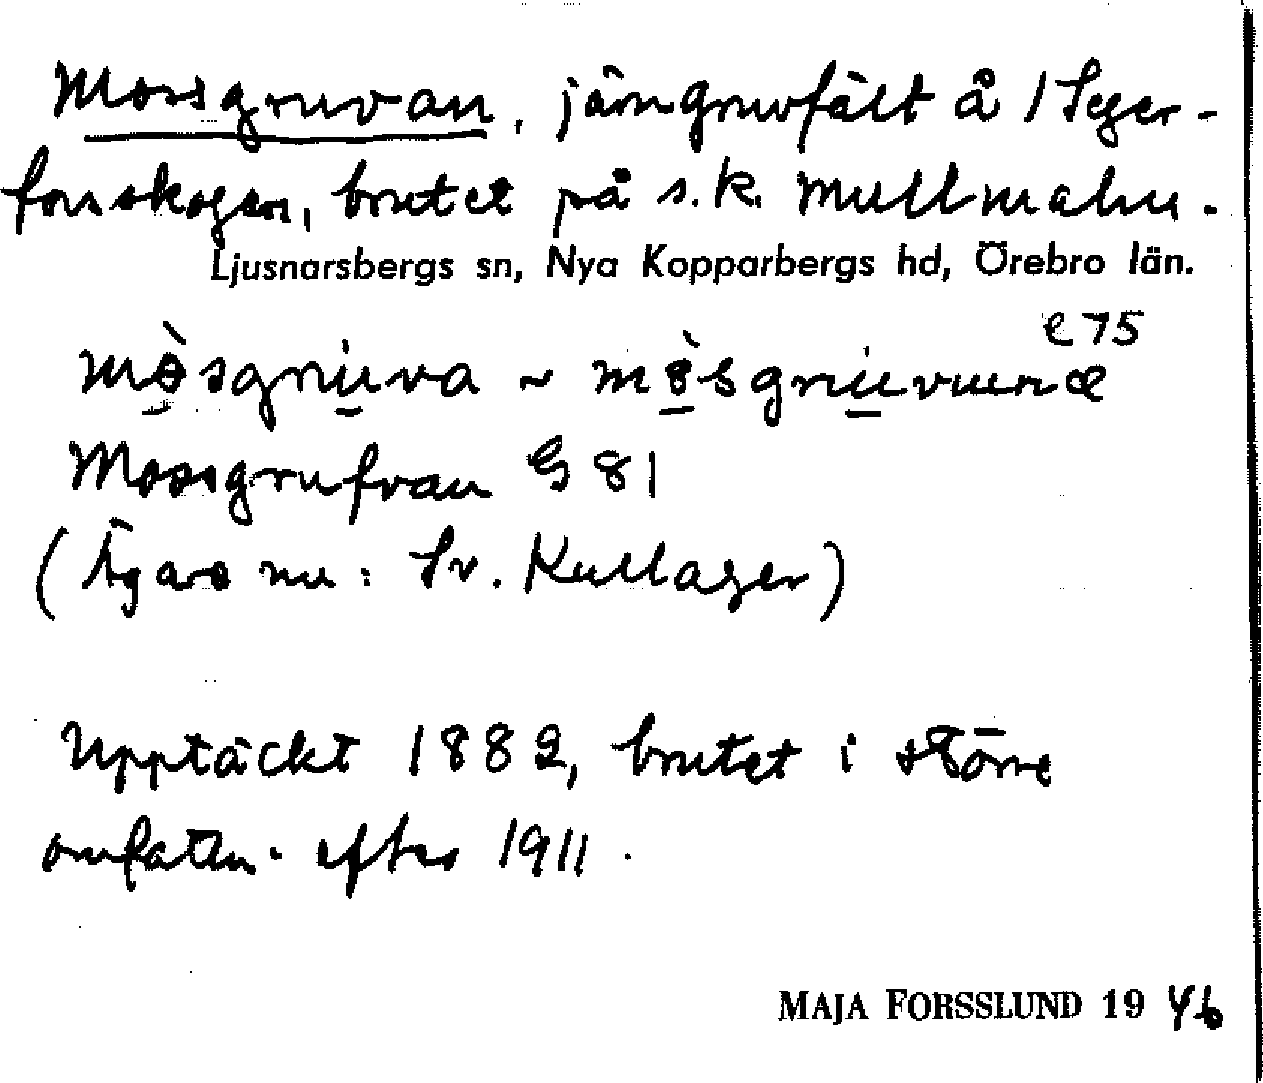 Mossgruvan, järngruvfält å /Seger-
forsskogen, brutet på s.k. mullmalm.
Ljusnarsbergs sn, Nya Kopparbergs hd, Örebro län.
e 75
Mossgrufvan G 81
(Ägare nu: Sv. Kullager)
Upptäckt 1882, brutet i större
omfattn. efter 1911.
MAJA FORSSLUND 19 46